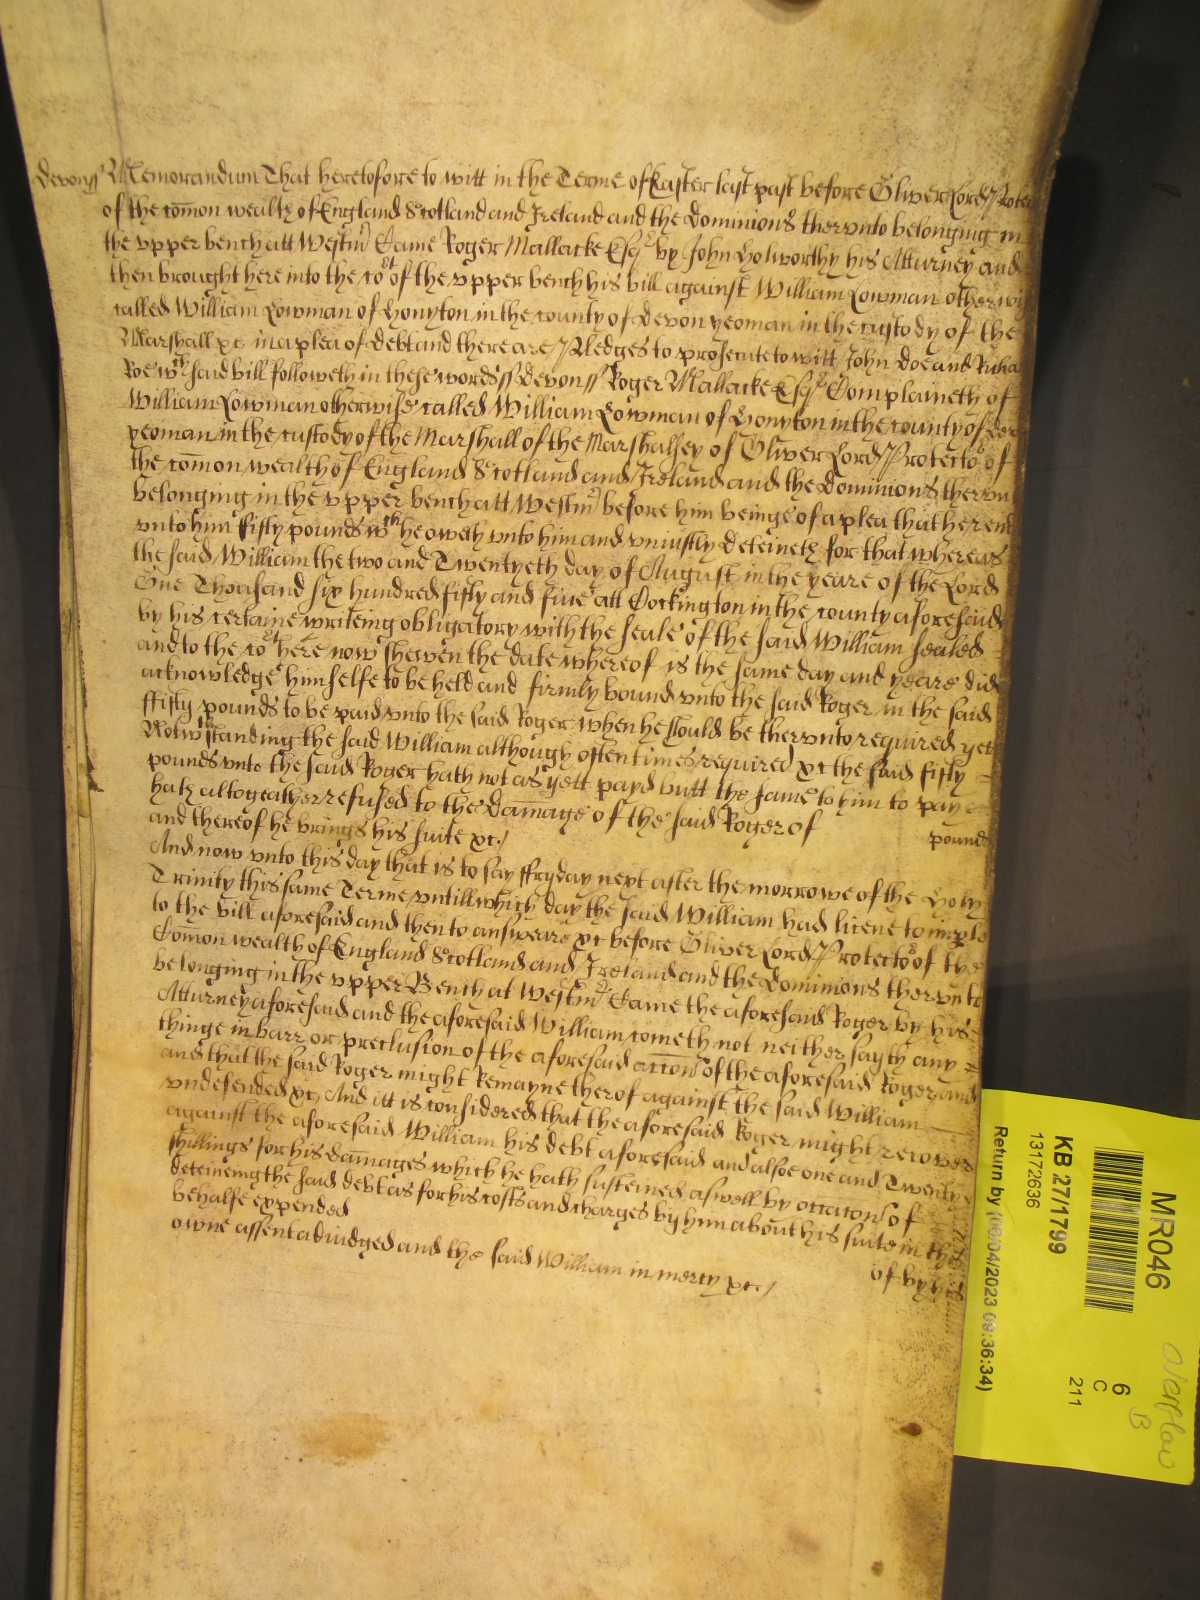 Devonss Memorandum That heretofore to witt in the Terme of Easter last past before Oliver Lord Protec
of the com̄on wealth of England Scotland and Ireland and the Dominions therunto belonging in
the upper bench att Westm̄ Came Roger Mallacke Esqr by John Holworthy his Atturney and
then brought here into the Cort of the upper bench his bill against William Lowman otherwis
called William Lowman of Honyton in the county of Devon yeoman in the custody of the
Marshall &c in a plea of debt and there are Pledges to prosecute to witt John Doe and Richa
Roe wch said bill followeth in these words ss Devon ss Roger Mallacke Esqr Complaineth of
William Lowman otherwise called William Lowman of Honyton in the county of Devon
yeoman in the custody of the Marshall of the Marshalsey of Oliver Lord Protector of
the com̄on wealth of England Scotland and Ireland and the Dominions therun
belonging in the upper bench att Westm̄ before him beinge of a plea that he rend
unto him fifty pounds wch he oweth unto him and uniustly deteineth for that whereas
the said William the two and Twentyeth day of August in the yeare of the Lord
One Thousand six hundred fifty and five att Cockington in the county aforesaid
by his certaine writeing obligatory with the seale of the said William sealed
and to the Cort here now shewen the date whereof is the same day and yeare did
acknowledge himselfe to be held and firmly bound unto the said Roger in the said
ffifty pounds to be paid unto the said Roger when he should be therunto required yet
Notwthstanding the said William although oftentimes required &c the said fifty
pounds unto the said Roger hath not as yett payd butt the same to him to pay
hath altogeather refused to the dam̄age of the said Roger of
pounds
and thereof he brings his suite &c
And now unto this day that is to say ffryday next after the morrowe of the Holy
Trinity this same Terme untill which day the said William had licence to imple
to the bill aforesaid and then to answeare &c before Oliver Lord Protector of the
Com̄on wealth of England Scotland and Ireland and the Dominions therunto
belonging in the upper Bench at Westm̄ Came the aforesaid Roger by his
Atturney aforesaid and the aforesaid William cometh not neither sayth any
thinge in barr or preclusion of the aforesaid acc̄on of the aforesaid Roger and
and that the said Roger might Remayne therof against the said William
undefended &c And itt is considered that the aforesaid Roger might recover
against the aforesaid William his debt aforesaid and alsoe one and Twenty
shillings for his dam̄ages which he hath susteined aswell by occac̄on of
deteineing the said debt as for his costs and charges by him about his suite in this
behalfe expended
of by his
owne assent adiudged and the said William in mercy &c
MR046
KB 27/1799
13172636
Return by (06/04/2023 09:36:34)
6
C
211
overflow
B